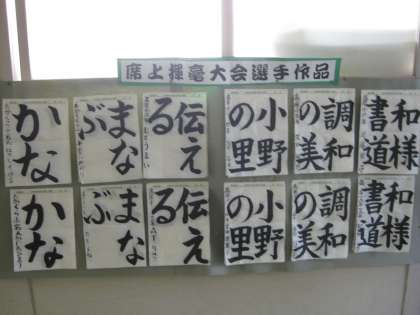 席上揮毫大会選手作品
かな
まなぶ
伝える
小野の里
調和の美
和様書道
かな
まなぶ
伝える
小野の里
調和の美
和様書道